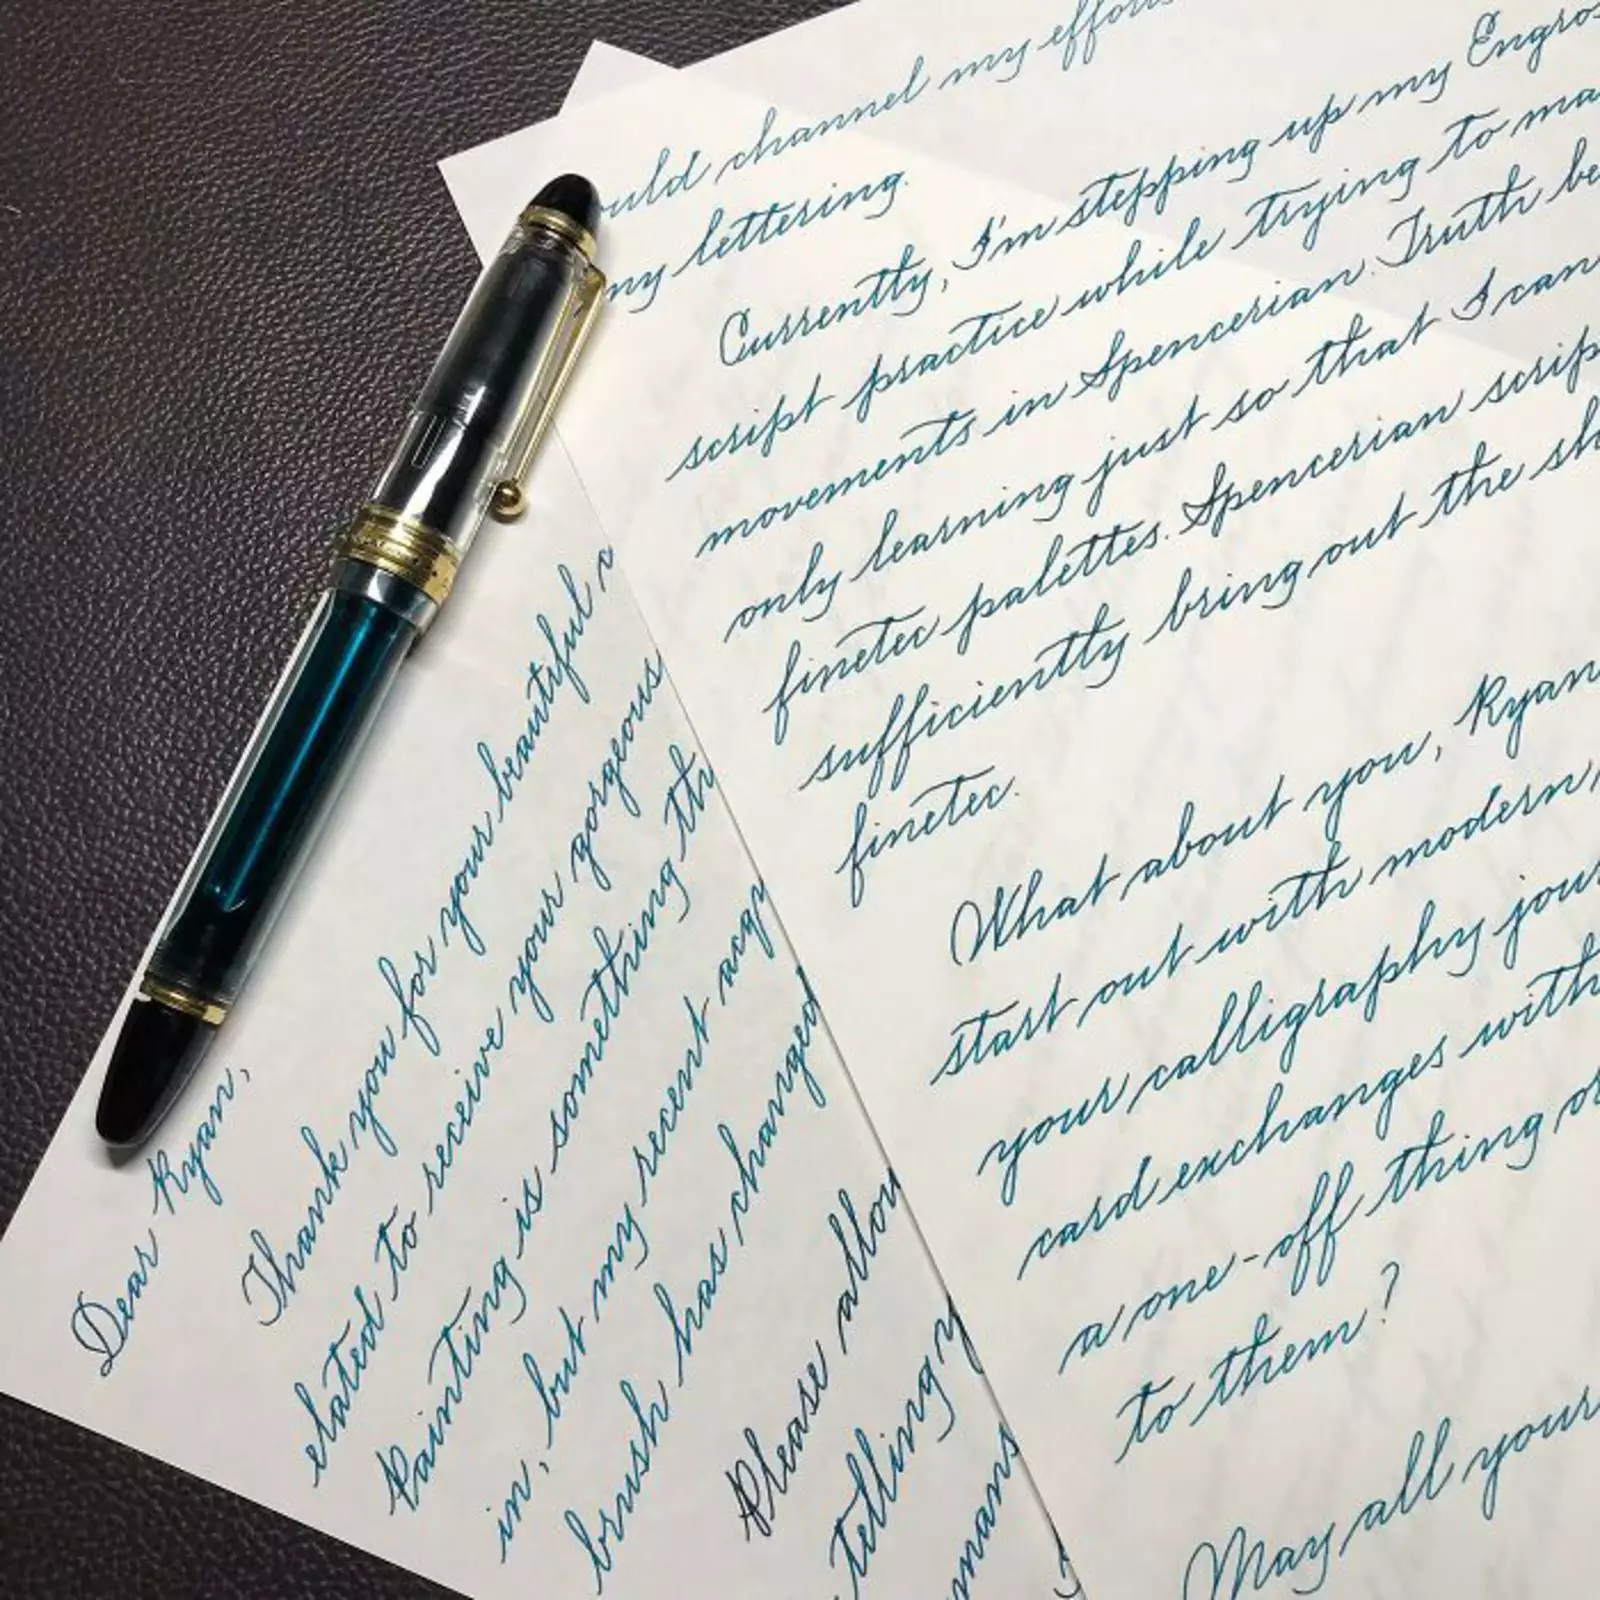 Dear Ryan,
Thank you for your beautiful
elated to receive your gorgeous
Painting is something
in, but my recent
brush has changed
Please
telling
channel my
my lettering.
Currently, I'm stepping up my
script practice while trying to
movements in Spencerian. Truth
only learning just so that I can
finetec palettes. Spencerian
sufficiently bring out the
finetec.
What about you, Ryan
start out with modern,
your calligraphy
card exchanges with
a one-off thing
to them?
May all your